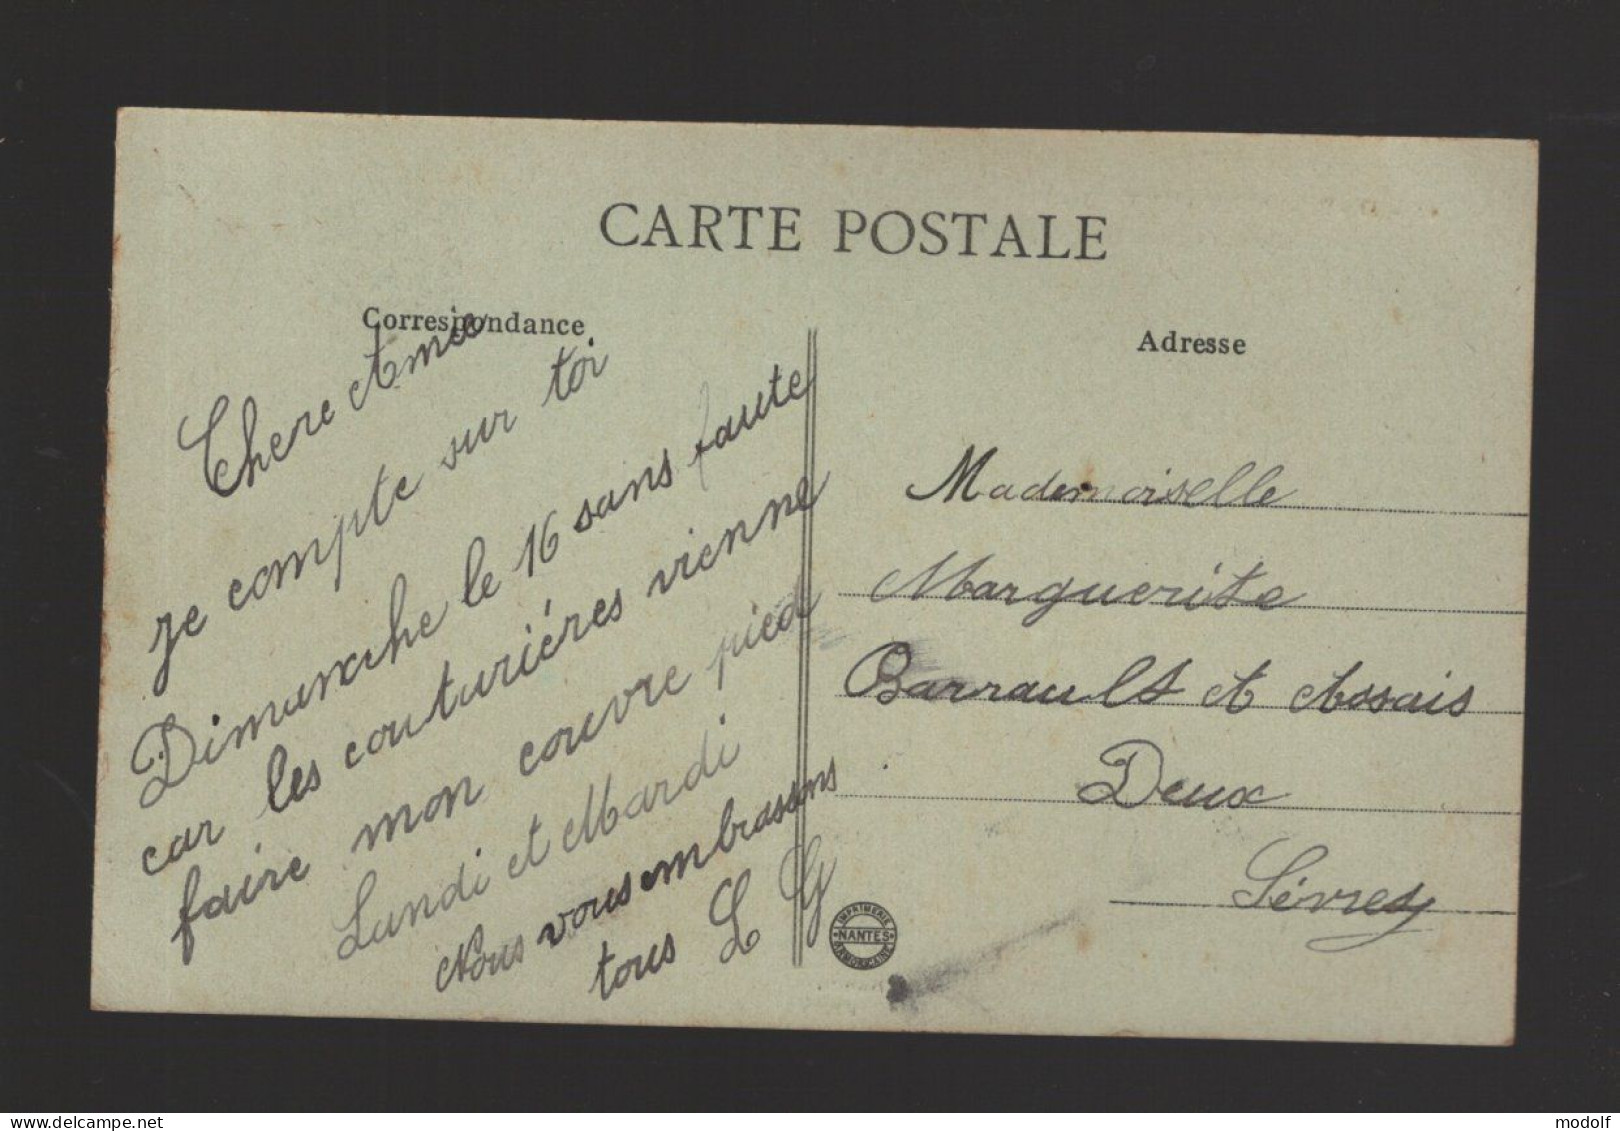 CARTE POSTALE
Correspondance
Adresse
Chere Amee
je compte sur toi
Dimanche le 16 sans faute
car les couturiéres vienne
faire mon couvre pied
Lundi et Mardi
Nous vous embrassons
tous L G
Mademoiselle
Marguerite
Barrault et Assais
Deux
Sévres
IMPRIMERIE
NANTES
ARMORICAINE
delcampe.net
modolf